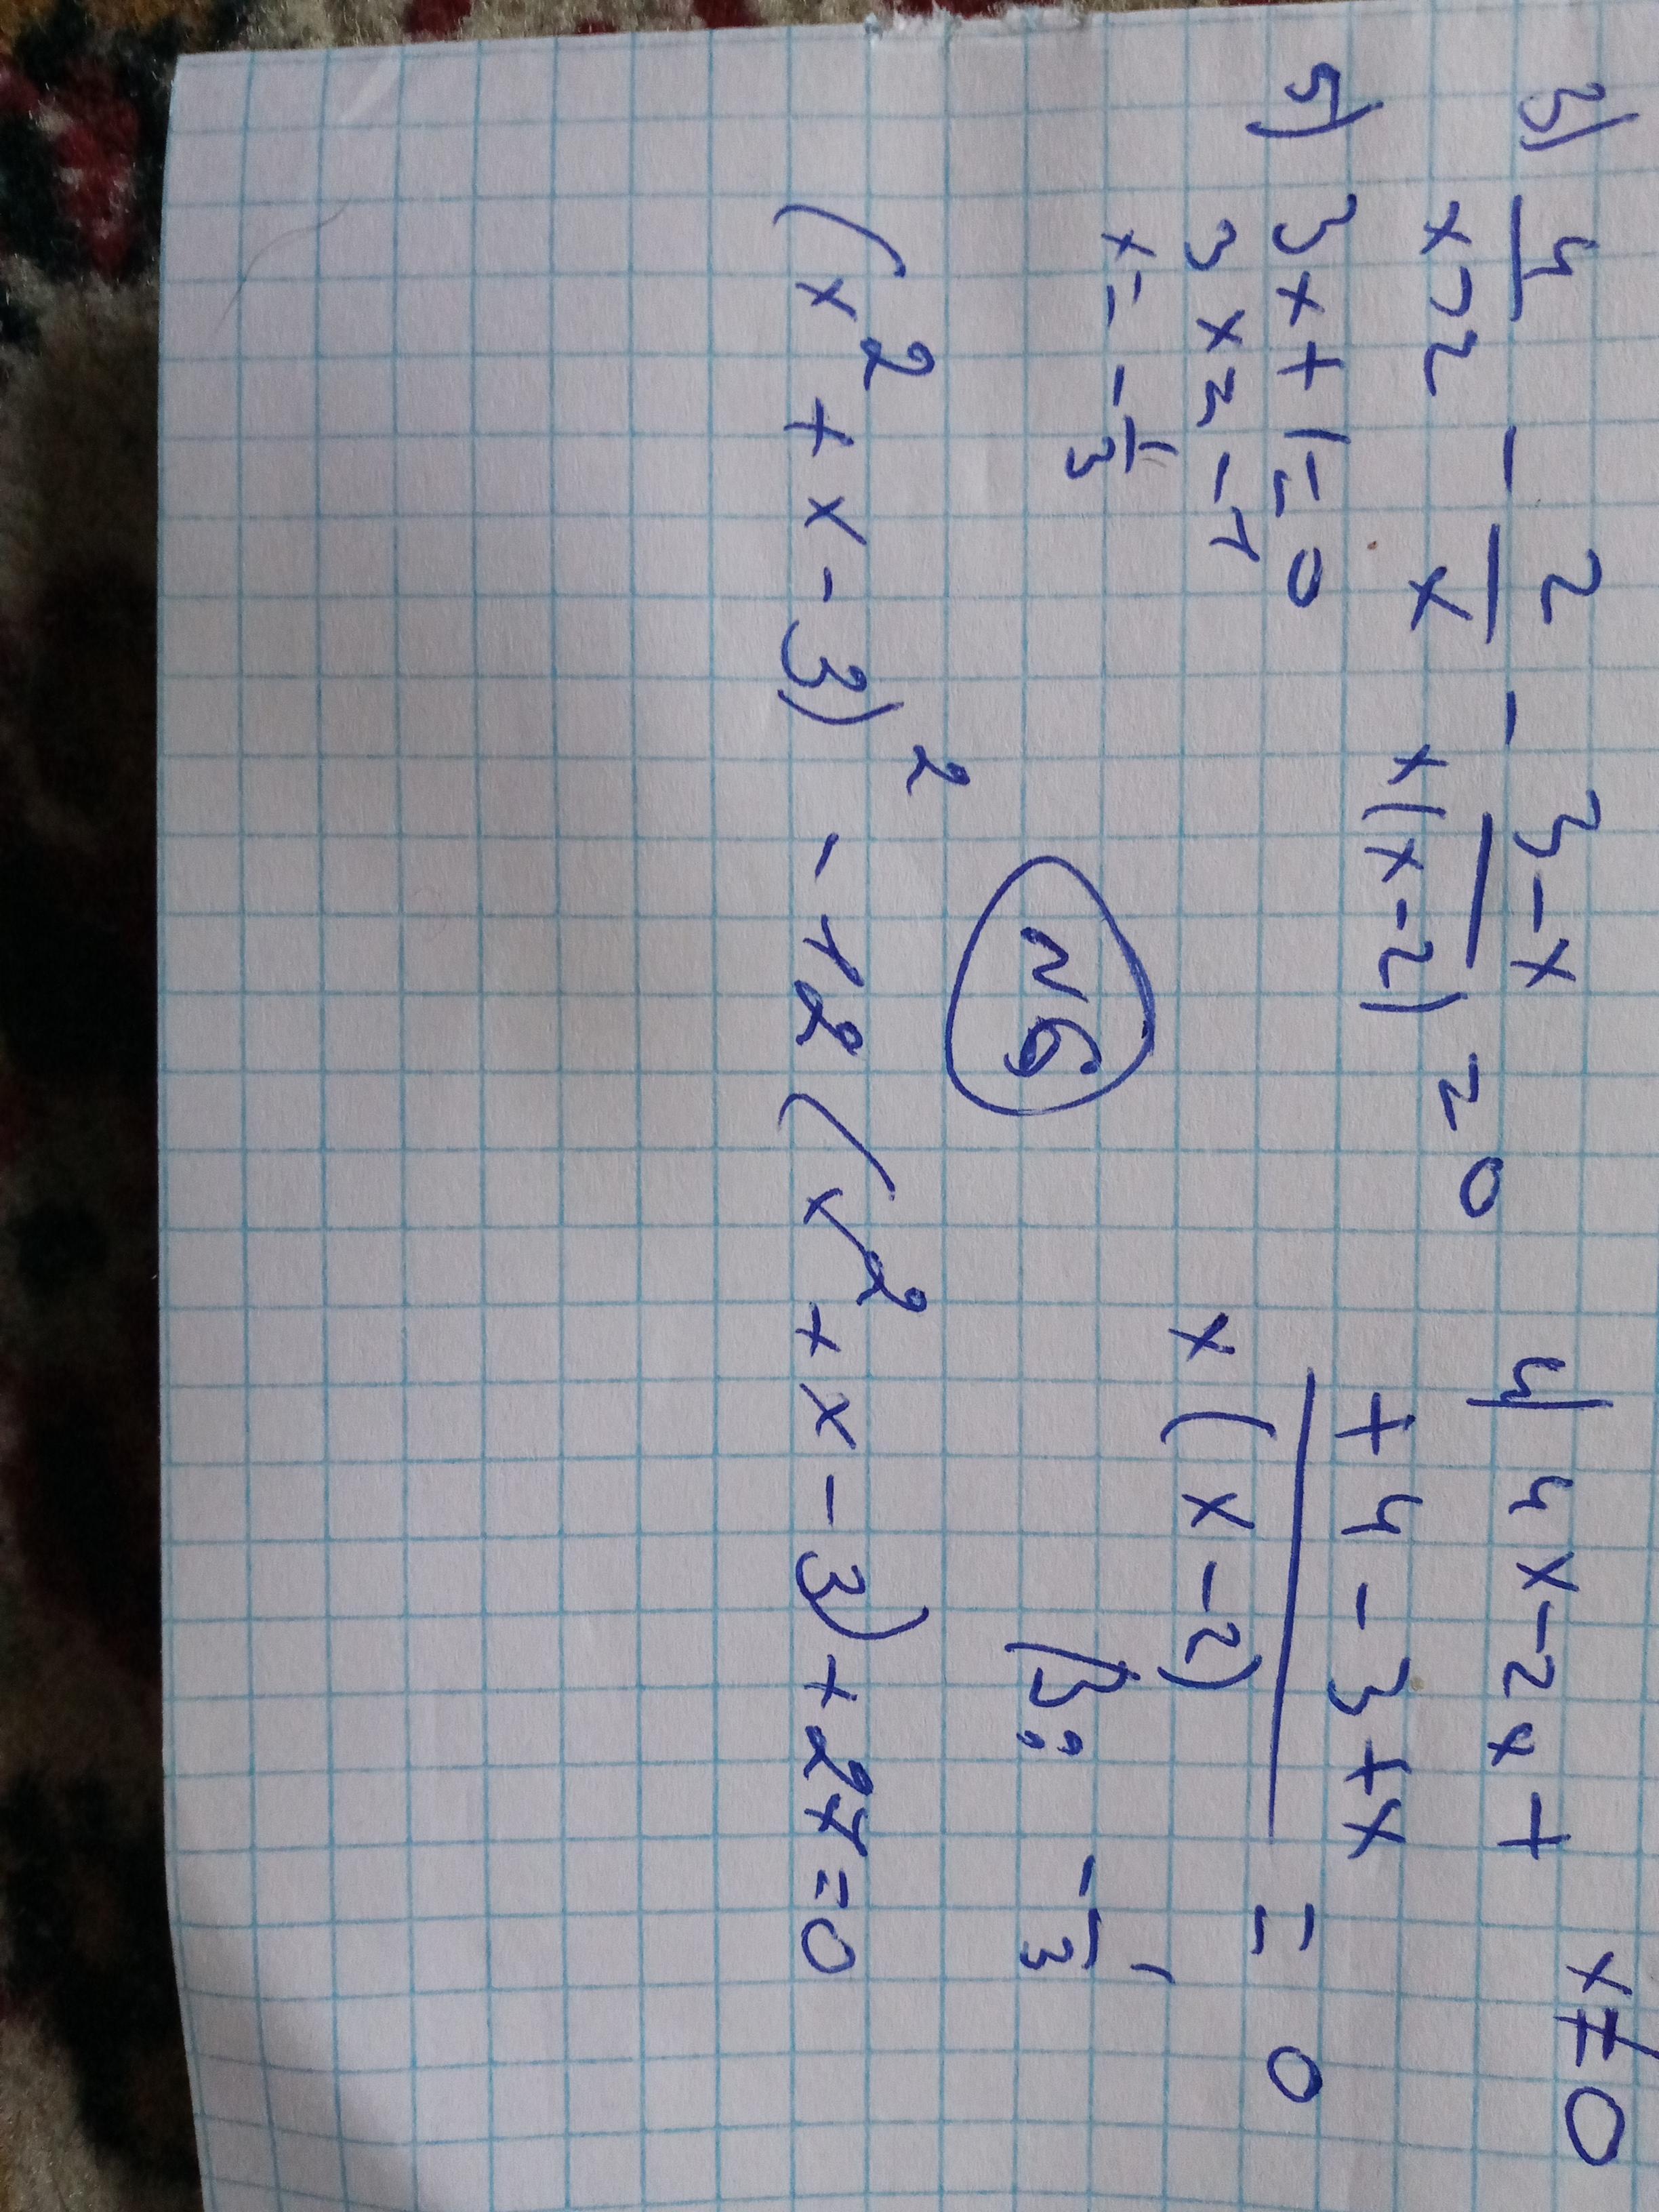 x≠0
3) 4/(x-2) - 2/x - (3-x)/(x(x-2)) = 0
4) (4x-2x+
+4-3+x)/(x(x-2)) = 0
5) 3x+1=0
3x=-1
x=-1/3
В: -1/3
N6
(x²+x-3)² -12(x²+x-3)+27=0